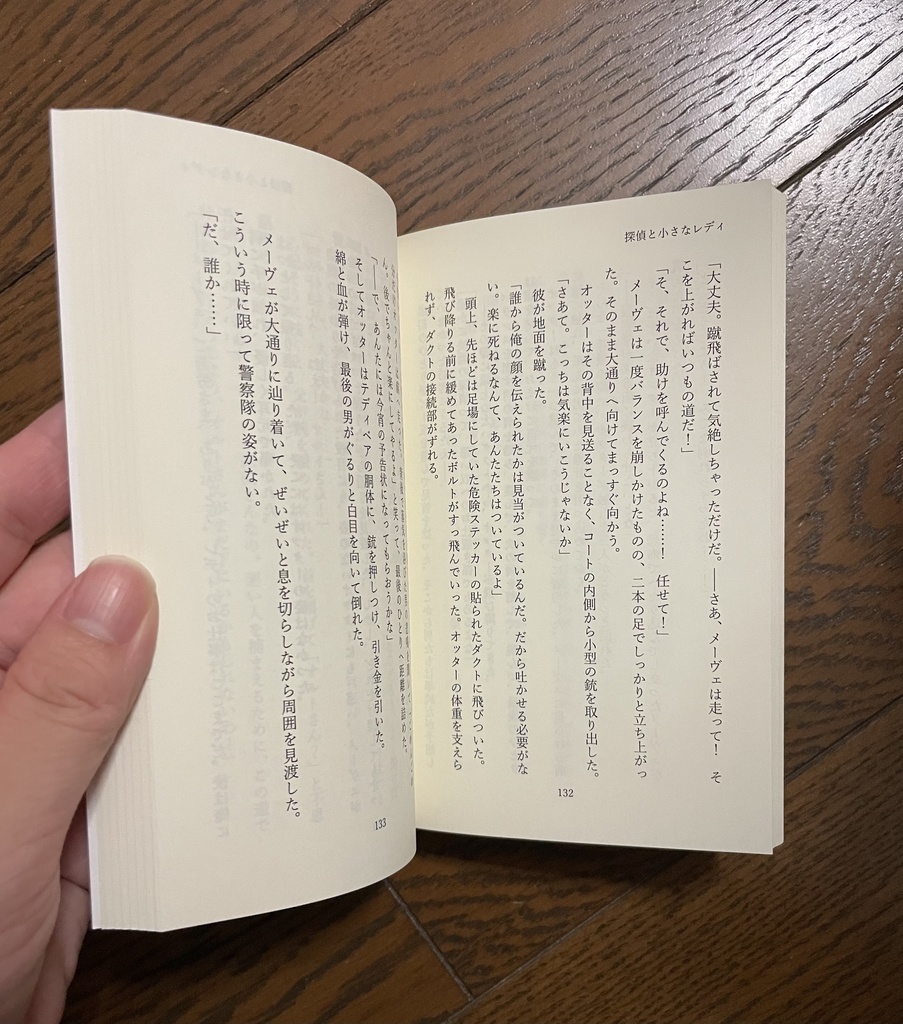 探偵と小さなレディ
「大丈夫。蹴飛ばされて気絶しちゃっただけだ。――さあ、メーヴェは走って！　そ
こを上がればいつもの道だ！」
「そ、それで、助けを呼んでくるのよね……！　任せて！」
メーヴェは一度バランスを崩しかけたものの、二本の足でしっかりと立ち上がっ
た。そのまま大通りへ向けてまっすぐ向かう。
オッターはその背中を見送ることなく、コートの内側から小型の銃を取り出した。
「さあて。こっちは気楽にいこうじゃないか」
彼が地面を蹴った。
「誰から俺の顔を伝えられたかは見当がついているんだ。だから吐かせる必要がな
い。楽に死ねるなんて、あんたたちはついているよ」
頭上、先ほどは足場にしていた危険ステッカーの貼られたダクトに飛びついた。
飛び降りる前に緩めてあったボルトがすっ飛んでいった。オッターの体重を支えら
れず、ダクトの接続部がずれる。
132
ん。彼でちゃんと楽にしてやるよ」と笑って、最後のひとりへ距離を詰めた。
「――で、あんたには今宵の予告状になってもらおうかな」
そしてオッターはテディベアの胴体に、銃を押しつけ、引き金を引いた。
綿と血が弾け、最後の男がぐるりと白目を向いて倒れた。
メーヴェが大通りに辿り着いて、ぜいぜいと息を切らしながら周囲を見渡した。
こういう時に限って警察隊の姿がない。
「だ、誰か……」
133